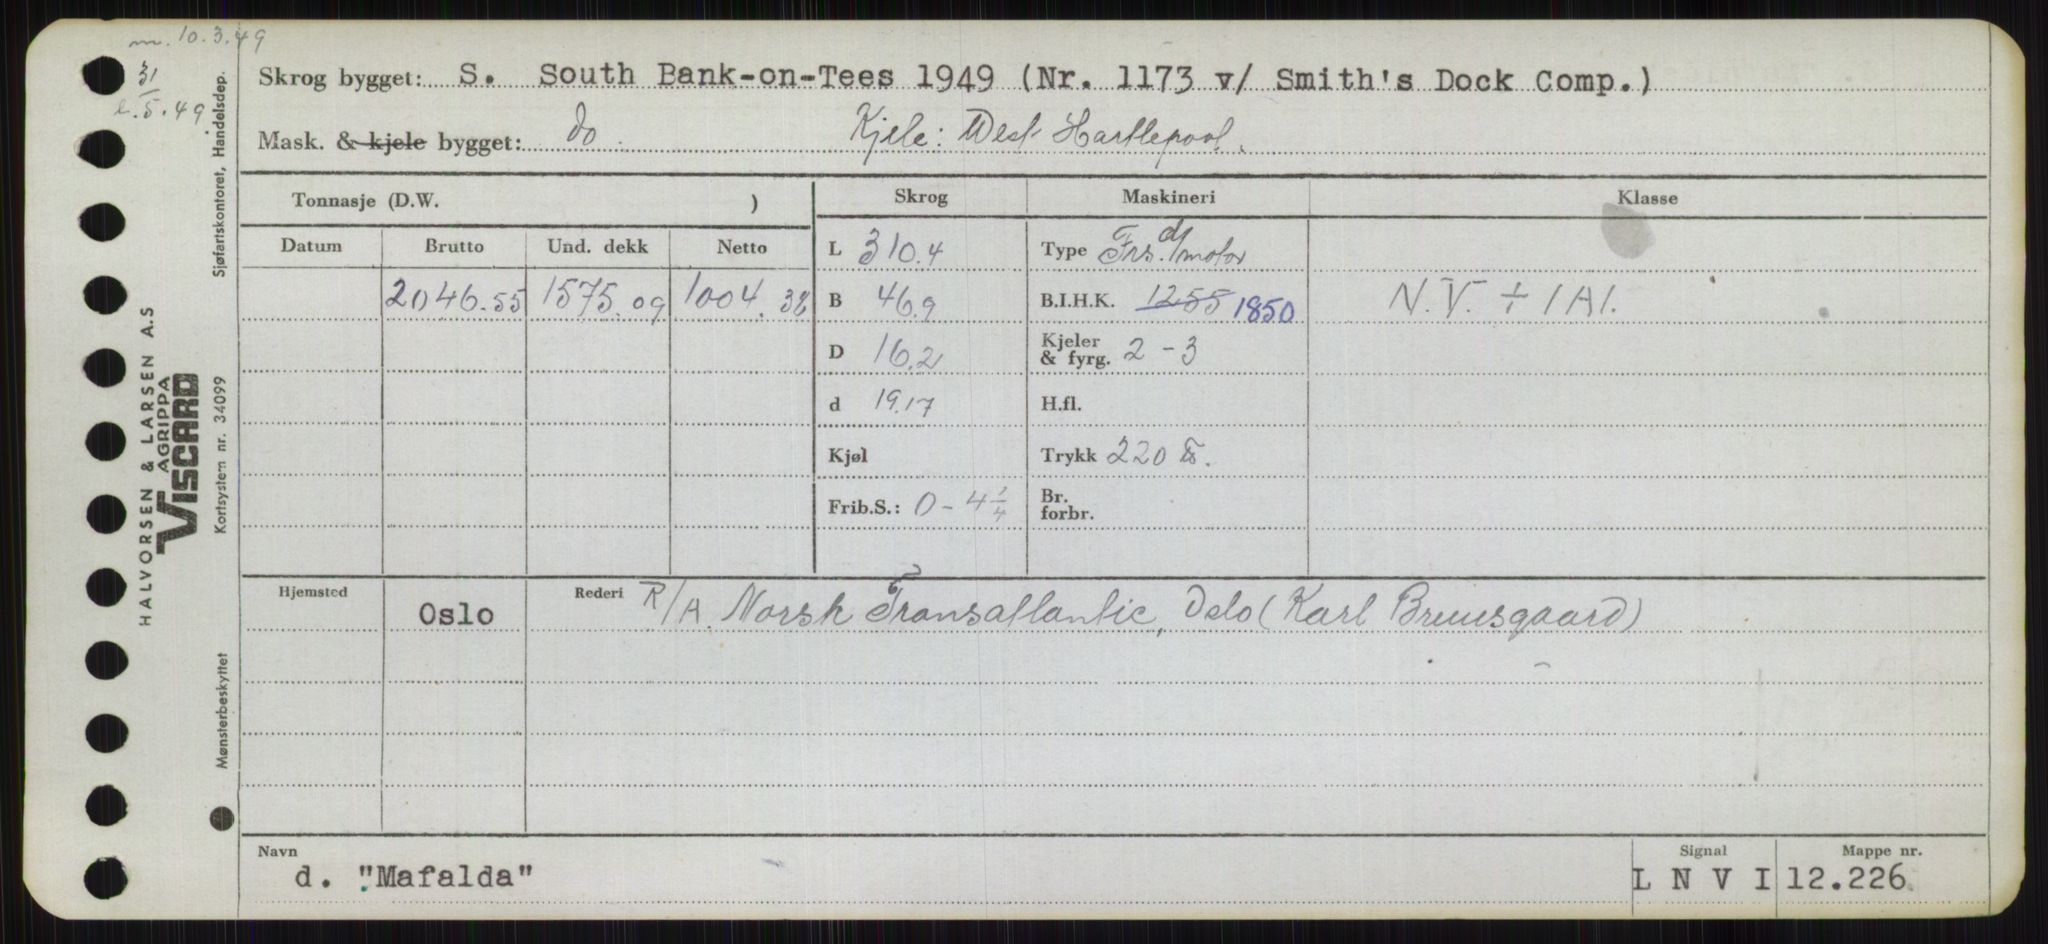 m. 10.3.49
31
l. 5. 49
Skrog bygget: S. South Bank-on-Tees 1949 (Nr. 1173 v/ Smith's Dock Comp.)
Mask. & kjele bygget: do. Kjele: West Hartlepool.
Tonnasje (D.W. ) Skrog Maskineri Klasse
Datum Brutto Und. dekk Netto
L 310.4 Type Frs. d/motor
2046.55 1575.09 1004.38 B 46.9 B.I.H.K. 1255 1850 N.V. + 1A1.
D 16.2 Kjeler & fyrg. 2 - 3
d 19.17 H.fl.
Kjøl Trykk 220 lb.
Frib.S.: 0 - 4 1/4 Br. forbr.
Hjemsted Oslo Rederi R/A. Norsk Transatlantic, Oslo (Karl Bruusgaard)
Navn Signal Mappe nr.
d. "Mafalda" L N V I 12.226
Sjøfartskontoret, Handelsdep.
Kortsystem nr. 34099
Mønsterbeskyttet
HALVORSEN & LARSEN A.S
AGRIPPA
VISCARD